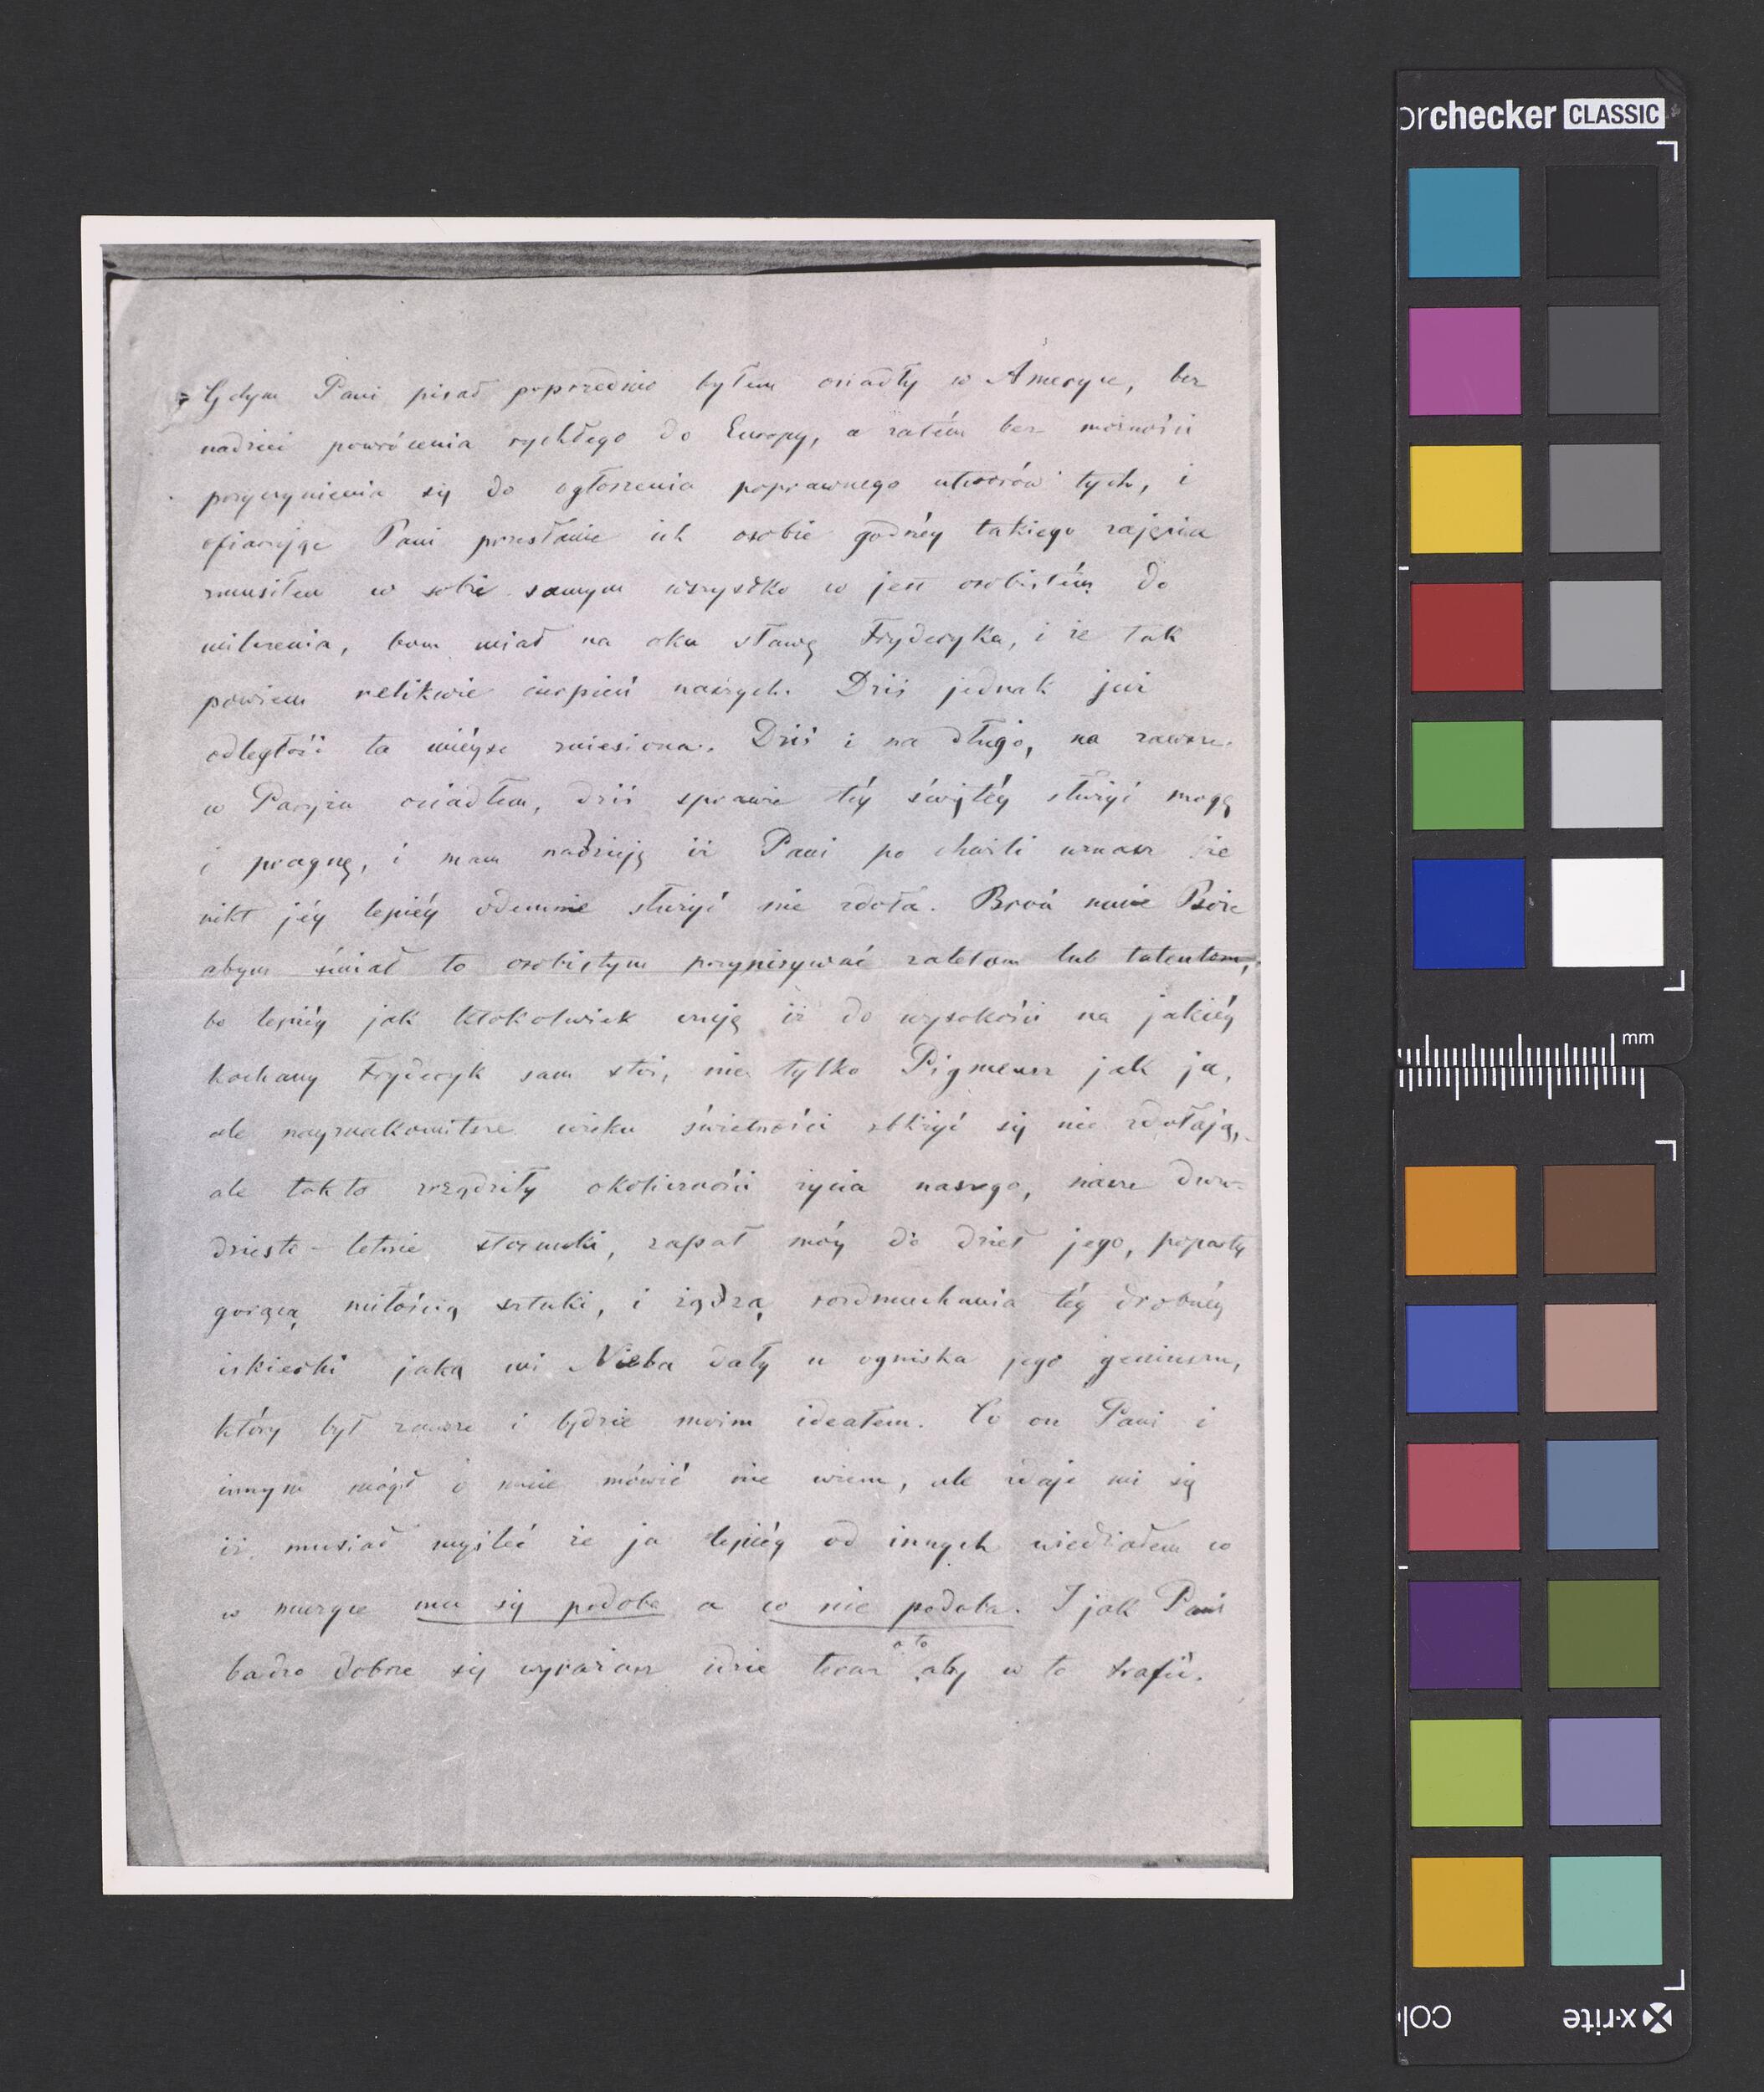 Gdym Pani pisał poprzednio byłem osiadły w Ameryce, bez
nadziei powrócenia rychłego do Europy, a zatém bez możności
przyczynienia się do ogłoszenia poprawnego utworów tych, i
ofiarując Pani przesłanie ich osobie godnéy takiego zajęcia
zmusiłem w sobie samym wszystko co jest osobistém do
milczenia, bom miał na oku sławę Fryderyka, i że tak
powiem relikwie cierpień naszych. Dziś jednak już
odległość ta więcye zniesiona. Dziś i na długo, na zawsze
w Paryżu osiadłem, dziś sprawie téy świętéy służyć mogę
i pragnę, i mam nadzieję iż Pani po chwili uznasz że
nikt jéy lepiéy odemnie służyć nie zdoła. Broń mnie Boże
abym śmiał to osobistym przypisywać zaletom lub talentom,
bo lepiéy jak ktokolwiek czuję iż do wysokości na jakiéy
kochany Fryderyk sam stoi, nie tylko Pigmeusz jak ja,
ale nayznakomitsze wieku świetności zbliżyć się nie zdołają,
ale tak to zrządziły okoliczności życia naszego, nasze dwu-
dziesto-letnie stosunki, zapał móy do dzieł jego, poparty
gorącą miłością sztuki, i żądzą rozdmuchania téy drobnéy
iskierki jaką mi Nieba dały u ogniska jego geniuszu,
który był zawsze i będzie moim ideałem. Co on Pani i
innym mógł o mnie mówić nie wiem, ale zdaje mi się
iż musiał myśleć że ja lepiéy od innych wiedziałem co
w muzyce mu się podoba a co nie podoba. I jak Pani
bardzo dobrze się wyrażasz idzie teraz o to aby w to trafić.
orchecker CLASSIC
mm
x-rite
col